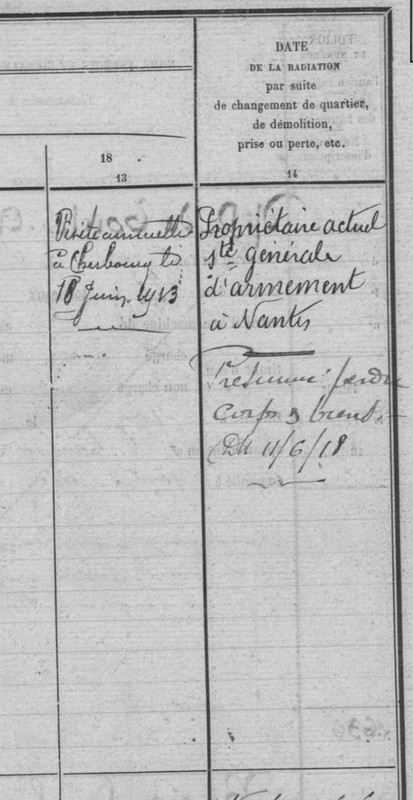 DATE
DE LA RADIATION
par suite
de changement de quartier,
de démolition,
prise ou perte, etc.
18
13
14
Visite annuelle
à Cherbourg le
18 Juin 1913
Propriétaire actuel
Sté générale
d'armement
à Nantes
Présumé perdu
corps & biens
DM 11/6/18